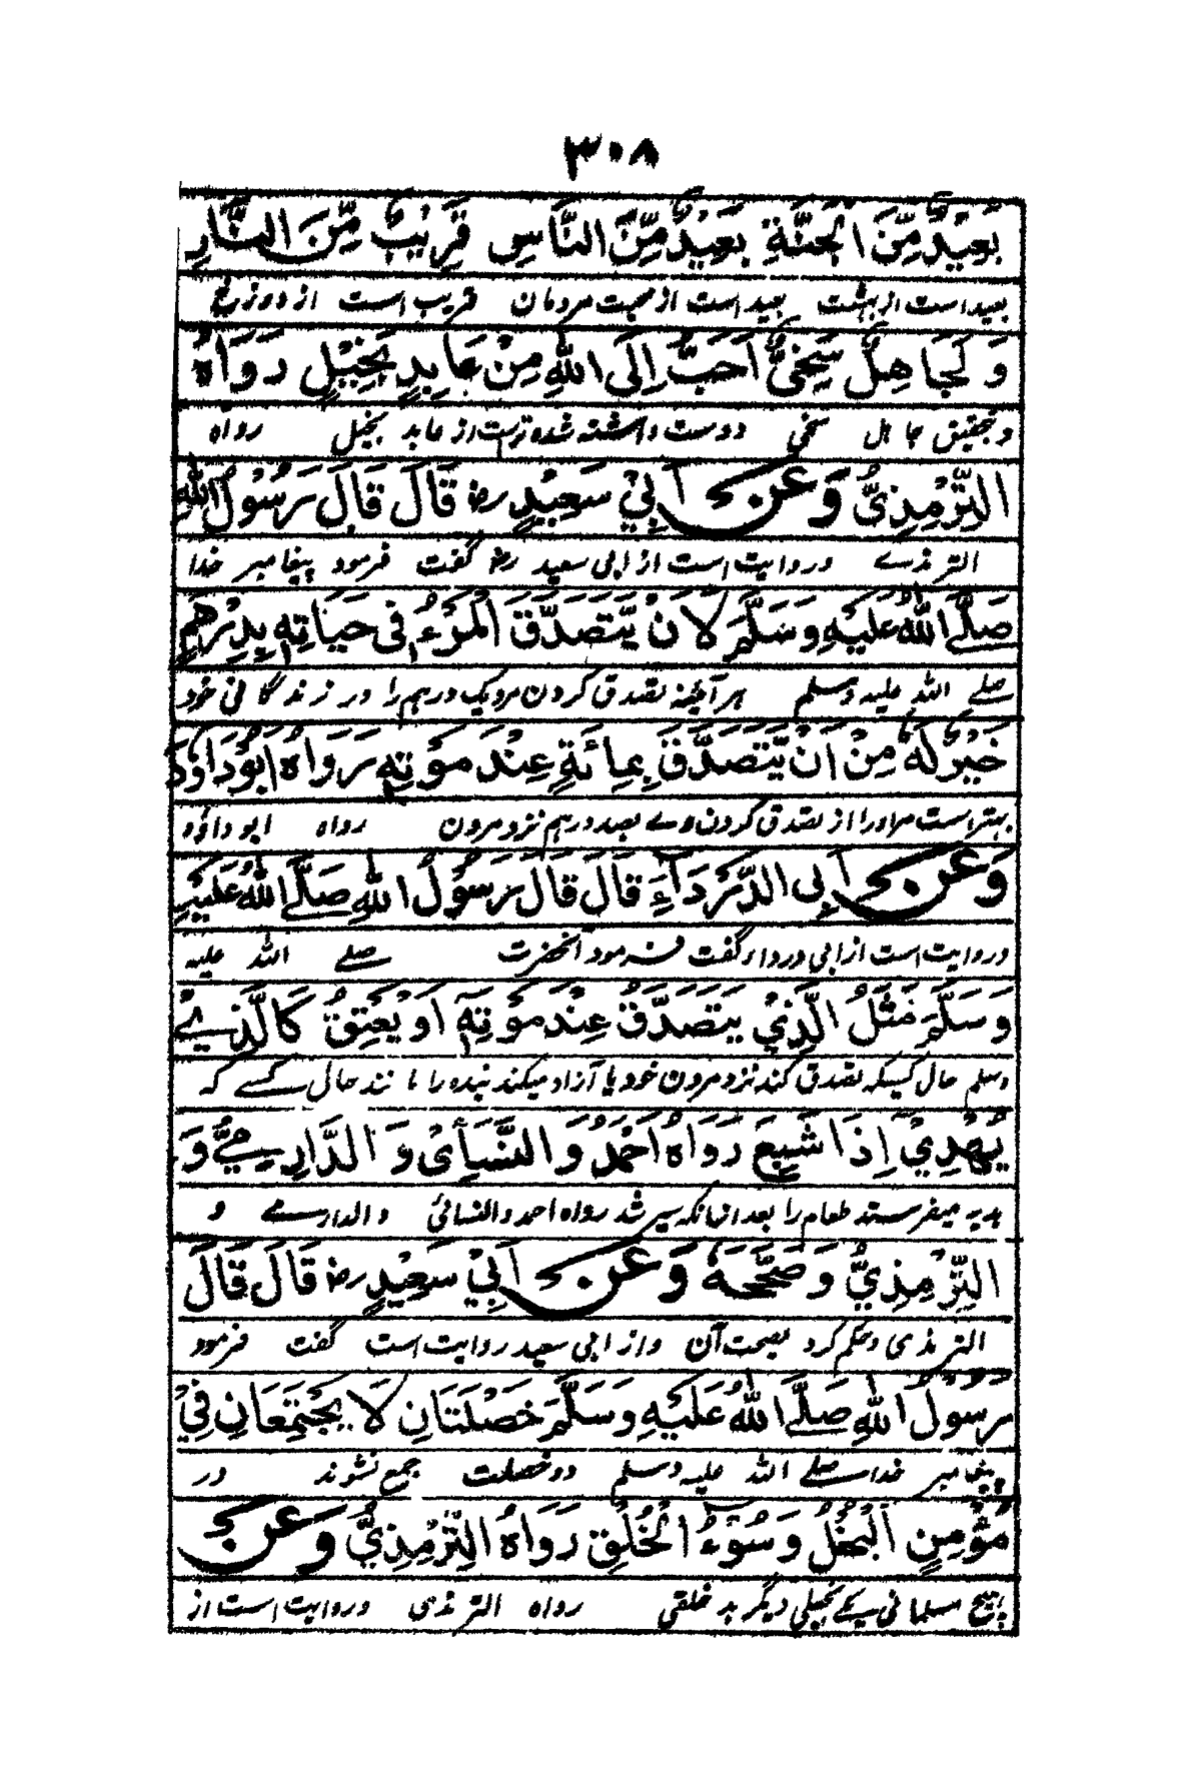 ۳۰۸
بَعِيْدٌ مِّنَ الْجَنَّةِ بَعِيْدٌ مِّنَ النَّاسِ قَرِيْبٌ مِّنَ النَّارِ
بعید است از بهشت بعید است از محبت مردمان قریب است از دوزخ
وَ لَجَاهِلٌ سَخِيٌّ اَحَبُّ اِلَى اللهِ مِنْ عَابِدٍ بَخِيْلٍ رَوَاهُ
و تحقیق جاهل سخی دوست داشته شده ترست از عابد بخیل رواه
التِّرْمِذِىُّ وَعَنْ اَبِيْ سَعِيْدٍ رض قَالَ قَالَ رَسُوْلُ اللهِ
الترمذے و روایت است از ابی سعید رض گفت فرمود پیغامبر خدا
صَلَّے اللهُ عَلَيْهِ وَسَلَّمَ لَاَنْ يَّتَصَدَّقَ الْمَرْءُ فِى حَيَاتِهٖ بِدِرْهَمٍ
صلے الله علیه وسلم هر آئینه تصدق کردن مرد یک درهم را در زندگانی خود
خَيْرٌ لَهٗ مِنْ اَنْ يَّتَصَدَّقَ بِمِائَةٍ عِنْدَ مَوْتِهٖ رَوَاهُ اَبُوْدَاوٗدَ
بهتر است مر او را از تصدق کردن وے بصد درهم نزد مردن رواه ابو داؤد
وَعَنْ اَبِى الدَّرْدَآءِ قَالَ قَالَ رَسُوْلُ اللهِ صَلَّے اللهُ عَلَيْهِ
و روایت است از ابی درداء گفت فرمود آنحضرت صلے الله علیه
وَسَلَّمَ مَثَلُ الَّذِيْ يَتَصَدَّقُ عِنْدَ مَوْتِهٖ اَوْ يُعْتِقُ كَالَّذِيْ
وسلم حال کسیکه تصدق کند نزد مردن خود یا آزاد میکند بنده را مانند حال کسے که
يُهْدِيْ اِذَا شَبِعَ رَوَاهُ اَحْمَدُ وَ النَّسَائِىُ وَ الدَّارِمِيُّ وَ
هدیه میفرستد طعام را بعد از آنکه سیر شد رواه احمد و النسائی و الدارمے و
التِّرْمِذِيُّ وَ صَحَّحَهٗ وَعَنْ اَبِيْ سَعِيْدٍ رض قَالَ قَالَ
الترمذی و حکم کرد بصحت آن و از ابی سعید روایت است گفت فرمود
رَسُوْلُ اللهِ صَلَّے اللهُ عَلَيْهِ وَسَلَّمَ خَصْلَتَانِ لَا يَجْتَمِعَانِ فِيْ
پیغامبر خدا صلے الله علیه وسلم دو خصلت جمع نشوند در
مُؤْمِنٍ اَلْبُخْلُ وَ سُوْءُ الْخُلُقِ رَوَاهُ التِّرْمِذِيُّ وَعَنْ
هیچ مسلمانی یکے بخیلی دیگر بد خلقی رواه الترمذی و روایت است از